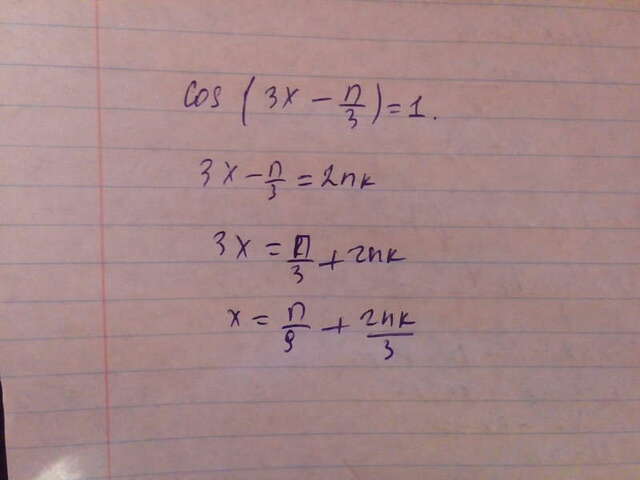 cos(3x - π/3) = 1.
3x - π/3 = 2πk
3x = π/3 + 2πk
x = π/9 + 2πk/3